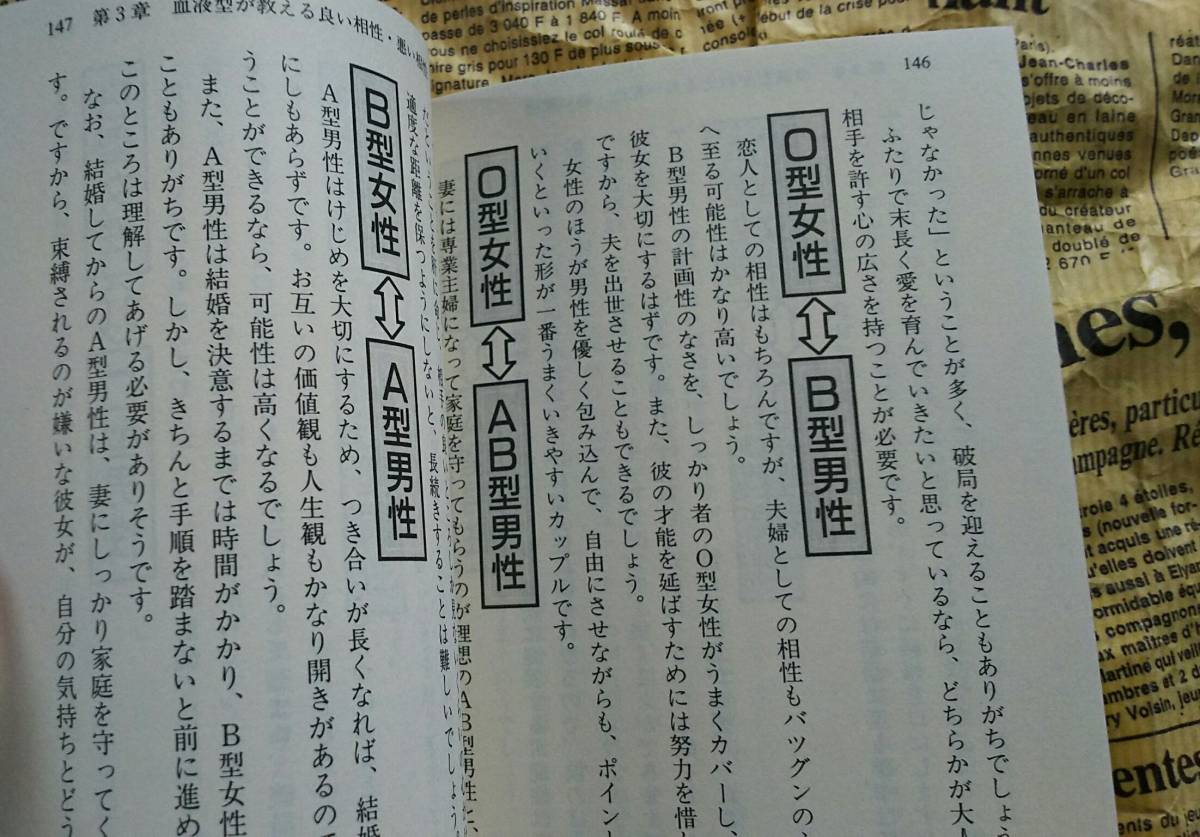 146
じゃなかった」ということが多く、破局を迎えることもありがちでしょう
ふたりで末長く愛を育んでいきたいと思っているなら、どちらかが大人
相手を許す心の広さを持つことが必要です。
O型女性⇔B型男性
恋人としての相性はもちろんですが、夫婦としての相性もバツグンの
へ至る可能性はかなり高いでしょう。
B型男性の計画性のなさを、しっかり者のO型女性がうまくカバーし、
彼女を大切にするはずです。また、彼の才能を延ばすためには努力を惜
ですから、夫を出世させることもできるでしょう。
女性のほうが男性を優しく包み込んで、自由にさせながらも、ポイント
いくといった形が一番うまくいきやすいカップルです。
O型女性⇔AB型男性
妻には専業主婦になって家庭を守ってもらうのが理想のAB型男性と、
適度な距離を保つようにしないと、長続きすることは難しいでしょう
147 第3章 血液型が教える良い相性・悪い相性
B型女性⇔A型男性
A型男性はけじめを大切にするため、つき合いが長くなれば、結婚
にしもあらずです。お互いの価値観も人生観もかなり開きがあるので
うことができるなら、可能性は高くなるでしょう。
また、A型男性は結婚を決意するまでは時間がかかり、B型女性
こともありがちです。しかし、きちんと手順を踏まないと前に進め
このところは理解してあげる必要がありそうです。
なお、結婚してからのA型男性は、妻にしっかり家庭を守ってく
す。ですから、束縛されるのが嫌いな彼女が、自分の気持ちとどう
de perles d'inspiration Massaï
passe de 3 040 F à 1 840 F. A moin
vous ne choisissiez le col roulé de c
gris pour 130 F de plus sous
ignature.
début de la crise pour
Paris).
Jean-Charles
s'offre à moins
jets de déco-
au en laine
authentiques
ennes venues
orné d'un col
s'arrache à
du créateur
anteau de
doublé de
2 670 F
nes,
ères, particu
mpagne. Ré
role 4 étoiles,
(nouvelle for-
acquis une re
u'elles doivent
aussi à Elyan
ormidable équ
compagnons
ax maîtres d'h
Martiné qui veille
ambres et 2 d
ry Voisin, jeu
entes